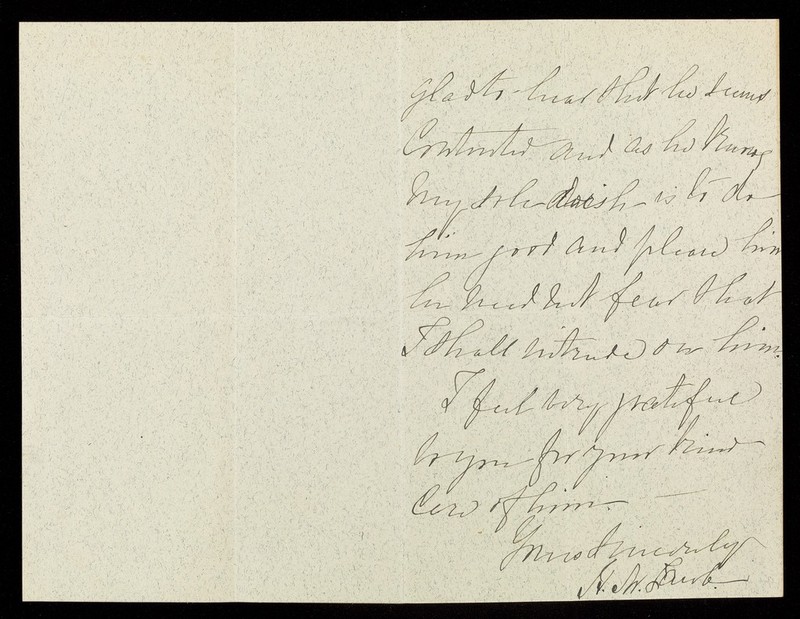 glad to hear that he seems
Contented and as he knows
my sole wish is to do
him good and please him
he need not fear that
I shall intrude on him.
I feel very grateful
to you for your kind
Care of him. —
Yours Sincerely
H. M.